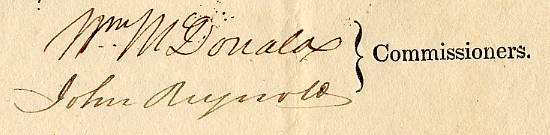 Wm McDonald
} Commissioners.
John Reynolds